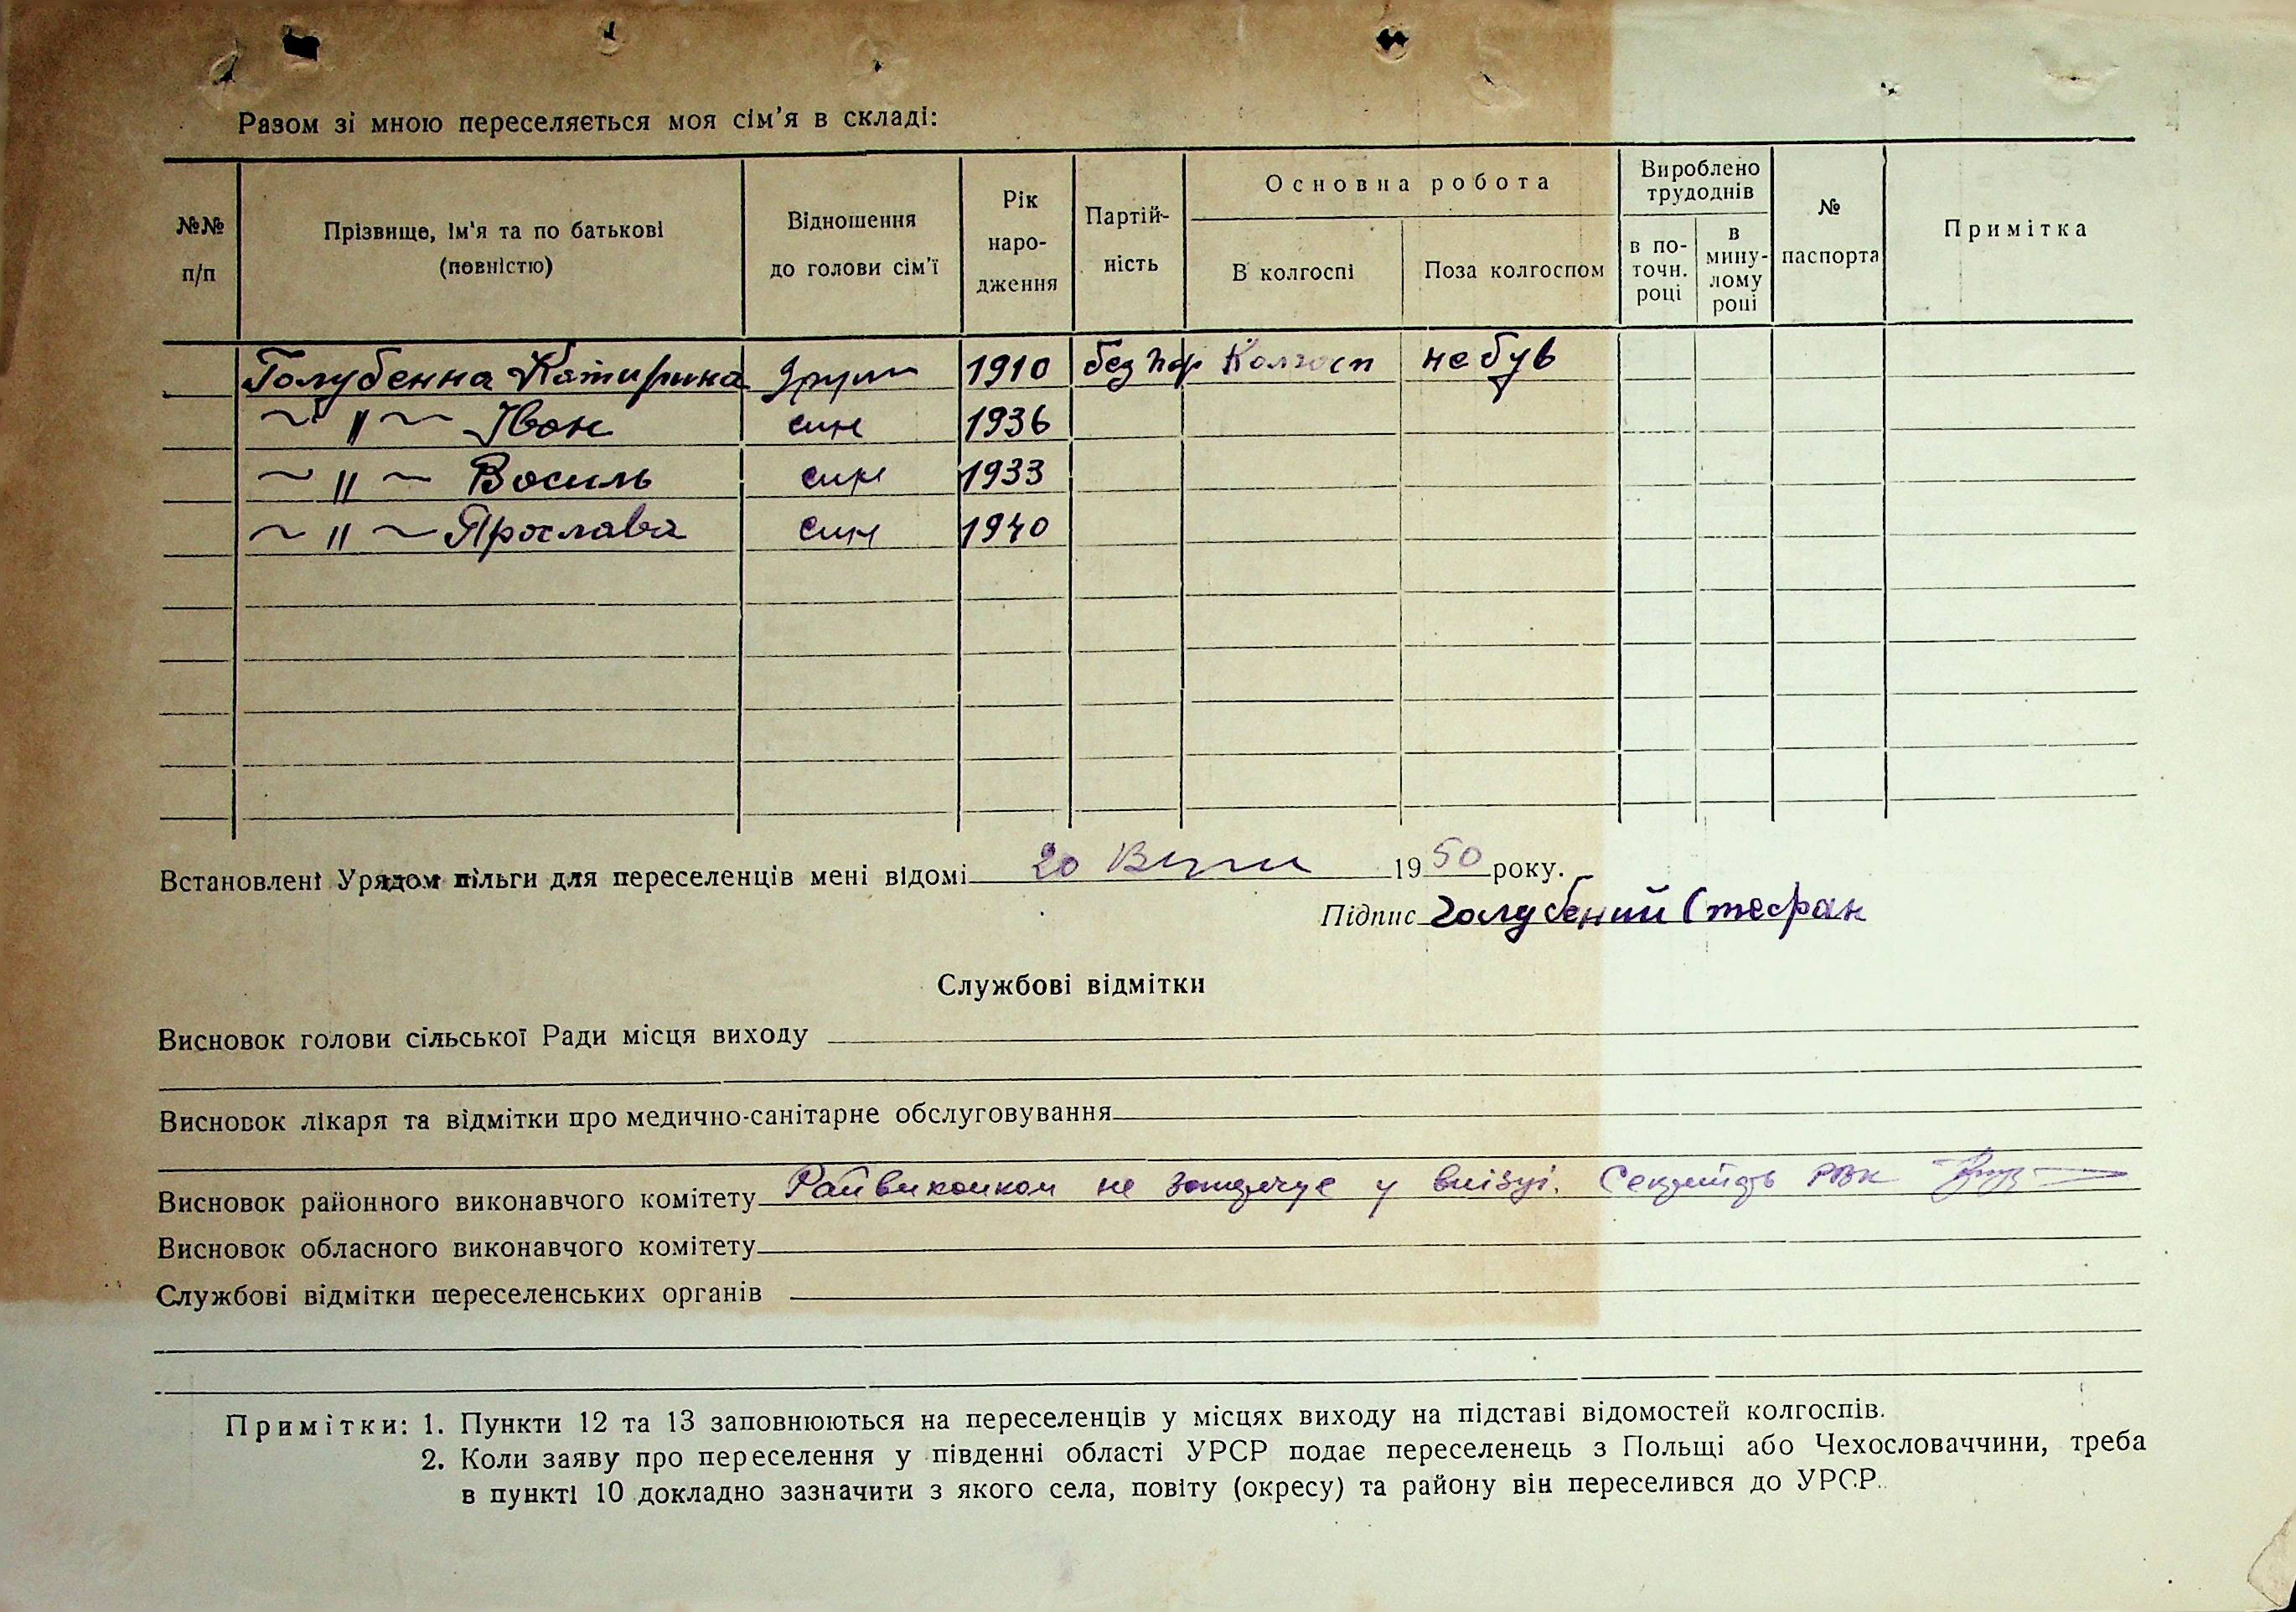 Разом зі мною переселяється моя сім'я в складі:
№№ п/п
Прізвище, ім'я та по батькові (повністю)
Відношення до голови сім'ї
Рік народження
Партійність
Основна робота
В колгоспі
Поза колгоспом
Вироблено трудоднів
в поточн. році
в минулому році
№ паспорта
Примітка
Голубенна Катирина 1910 без пар Колгосп не був
~ " ~ Іван син 1936
~ " ~ Василь син 1933
~ " ~ Ярослава син 1940
Встановлені Урядом пільги для переселенців мені відомі 20 1950 року.
Підпис Голубений Стефан
Службові відмітки
Висновок голови сільської Ради місця виходу
Висновок лікаря та відмітки про медично-санітарне обслуговування
Висновок районного виконавчого комітету Райвиконком не заперечує у виїзді. Секретарь РВК
Висновок обласного виконавчого комітету
Службові відмітки переселенських органів
Примітки: 1. Пункти 12 та 13 заповнюються на переселенців у місцях виходу на підставі відомостей колгоспів.
2. Коли заяву про переселення у південні області УРСР подає переселенець з Польщі або Чехословаччини, треба
в пункті 10 докладно зазначити з якого села, повіту (окресу) та району він переселився до УРСР.